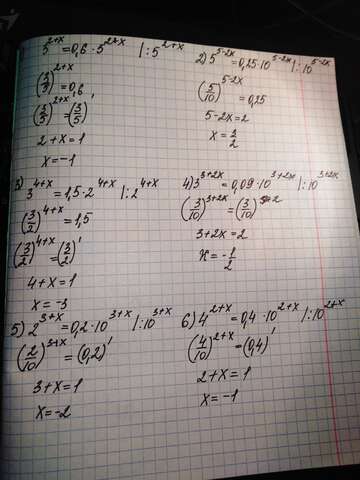 5^{2+x} = 0,6 · 5^{2+x} |: 5^{2+x}
(3/5)^{2+x} = 0,6
(3/5)^{2+x} = (3/5)^1
2 + x = 1
x = -1
2) 5^{5-2x} = 0,25 · 10^{5-2x} |: 10^{5-2x}
(5/10)^{5-2x} = 0,25
5 - 2x = 2
x = 3/2
3) 3^{4+x} = 1,5 · 2^{4+x} |: 2^{4+x}
(3/2)^{4+x} = 1,5
(3/2)^{4+x} = (3/2)^1
4 + x = 1
x = -3
4) 3^{3+2x} = 0,09 · 10^{3+2x} |: 10^{3+2x}
(3/10)^{3+2x} = (3/10)^2
3 + 2x = 2
x = -1/2
5) 2^{3+x} = 0,2 · 10^{3+x} |: 10^{3+x}
(2/10)^{3+x} = (0,2)^1
3 + x = 1
x = -2
6) 4^{2+x} = 0,4 · 10^{2+x} |: 10^{2+x}
(4/10)^{2+x} = (0,4)^1
2 + x = 1
x = -1